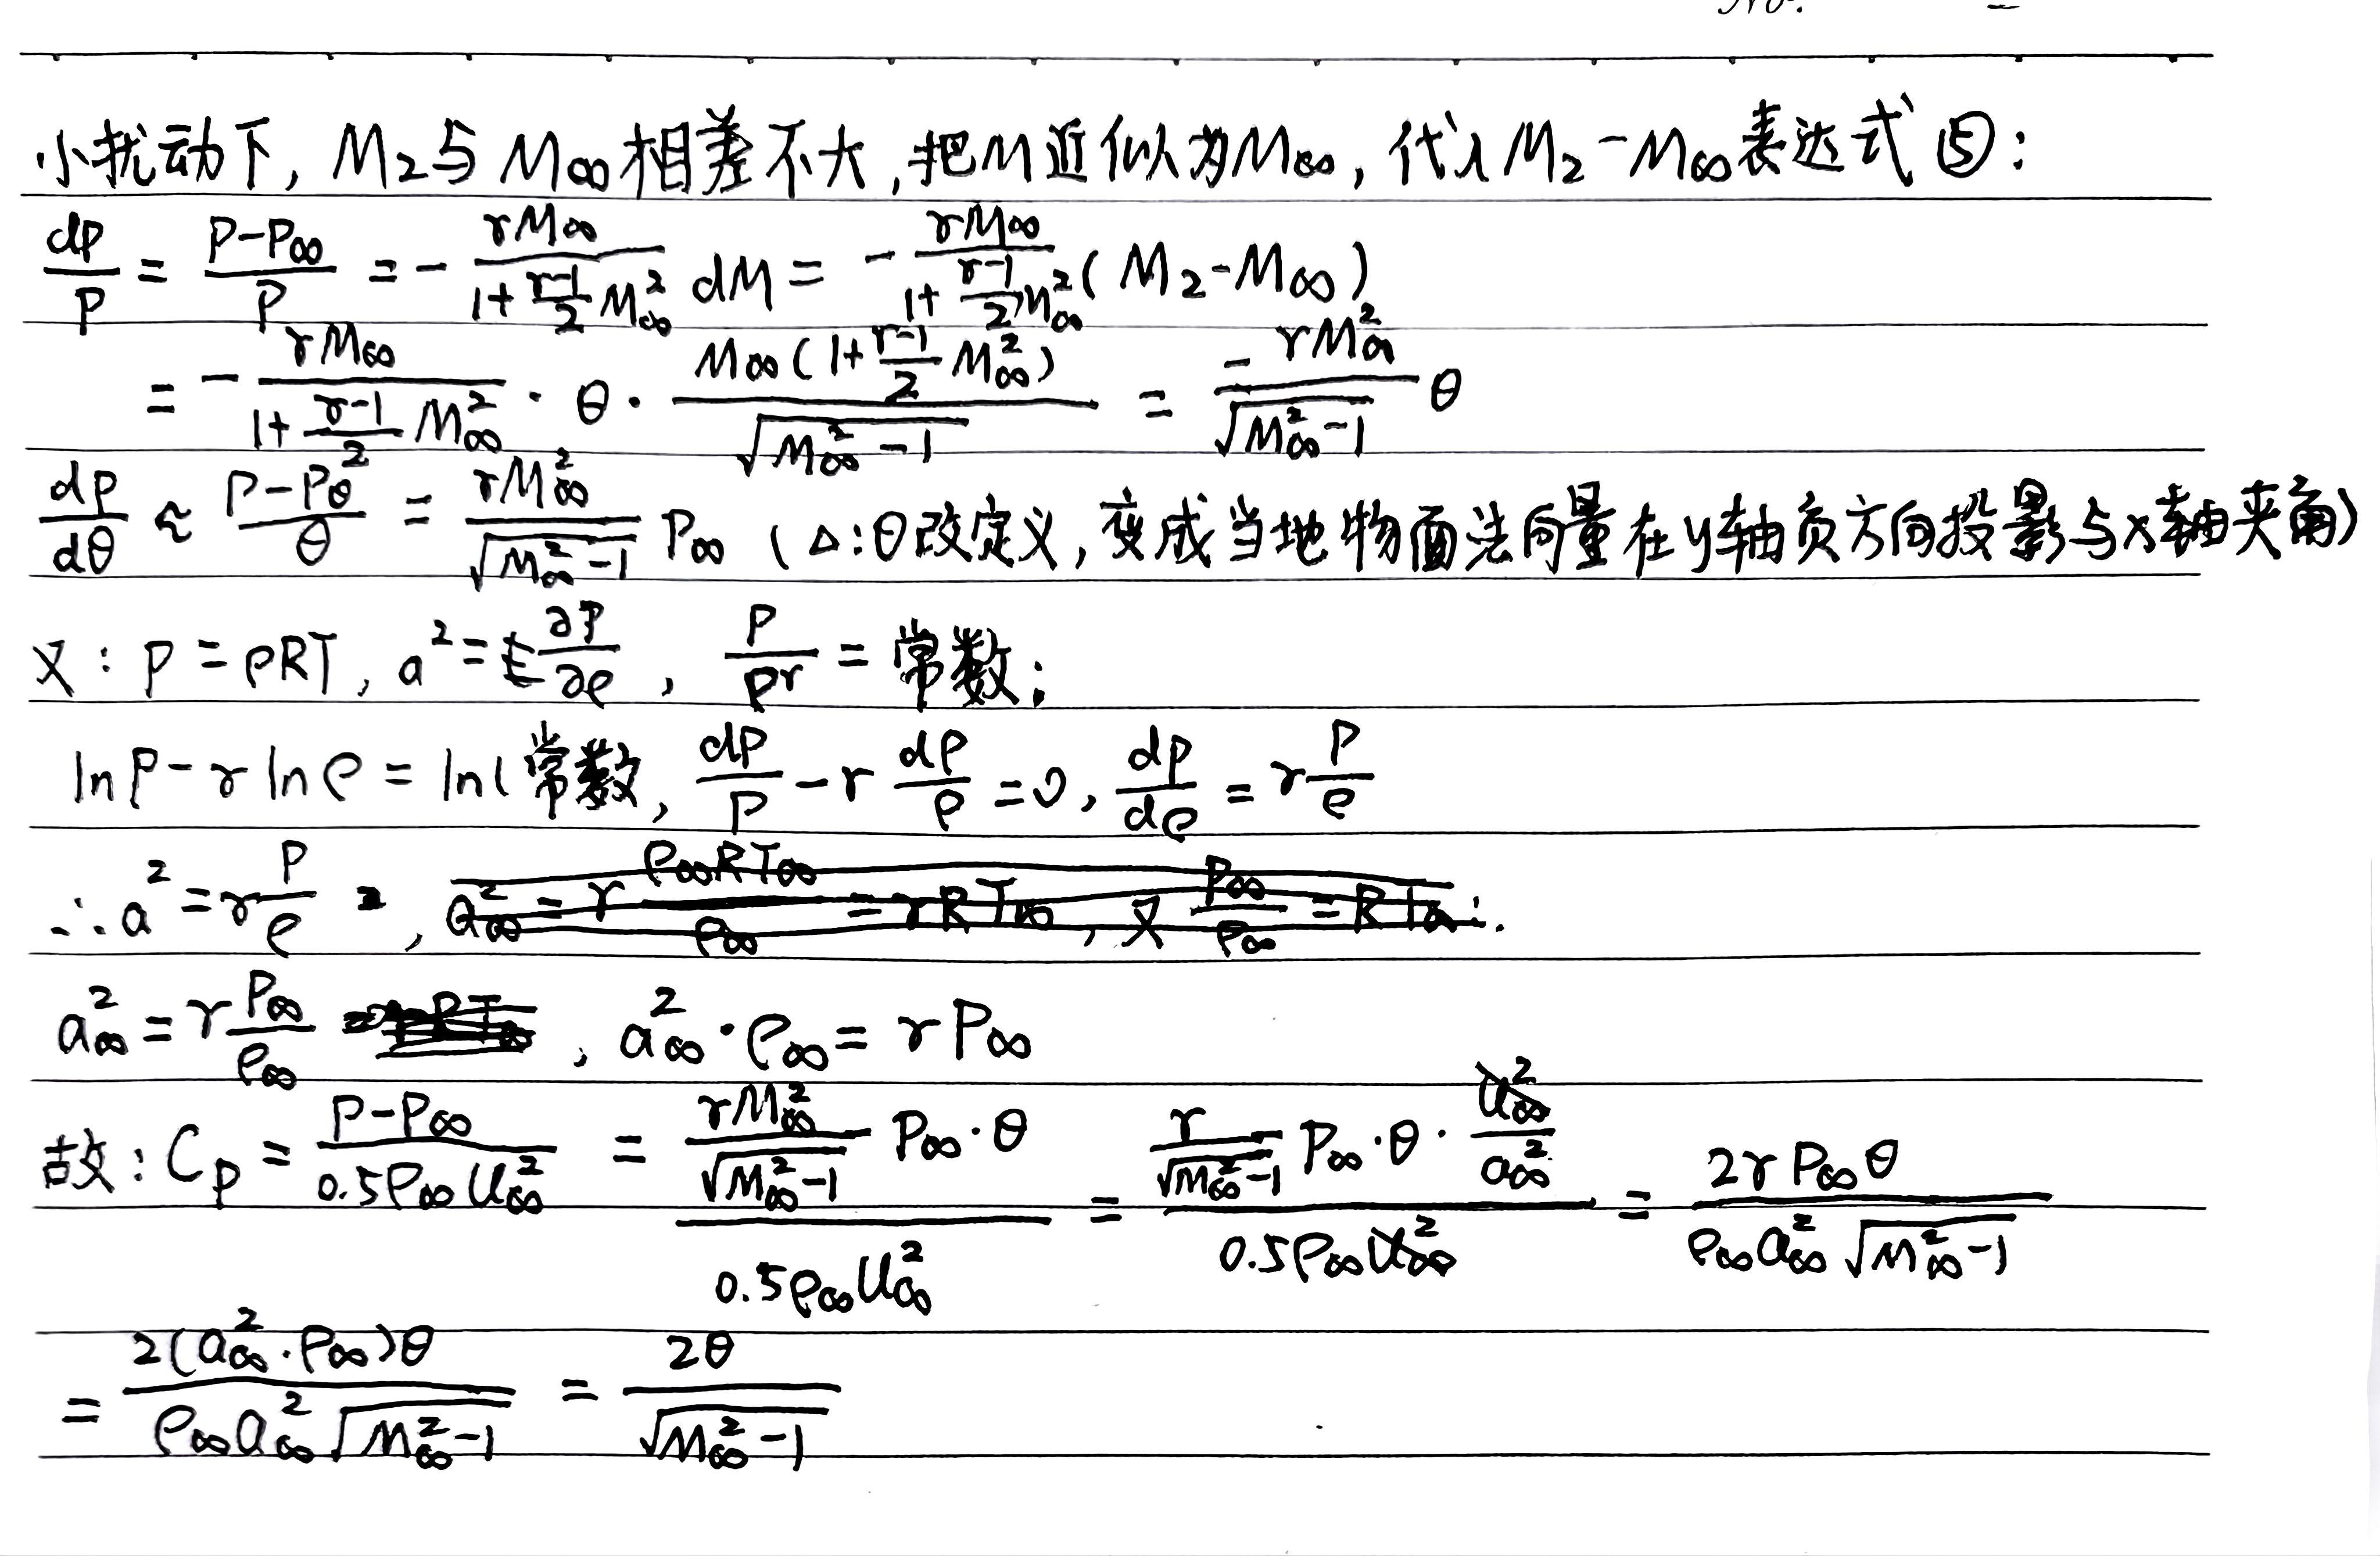 No.
小扰动下, M₂与M∞相差不大,把M近似为M∞, 代入M₂-M∞表达式⑤:
dp/P = (P-P∞)/P = - γM∞/(1+(γ-1)/2 M∞²) dM = - γM∞/(1+(γ-1)/2 M∞²) (M₂-M∞)
= - γM∞/(1+(γ-1)/2 M∞²) · θ · M∞(1+(γ-1)/2 M∞²)/√(M∞²-1) = -γM∞²/√(M∞²-1) θ
dp/dθ ≈ (P-Pθ)/θ = γM∞²/√(M∞²-1) P∞ (△:θ改定义,变成当地物面法向量在y轴负方向投影与x轴夹角)
又: P=ρRT, a²=∂P/∂ρ, P/ργ=常数;
lnP-γlnρ=ln(常数, dP/P-γdρ/ρ=0, dp/dρ=γP/ρ
∴a²=γP/ρ, a∞²=γρ∞RT∞/ρ∞=γRT∞, 又P∞/ρ∞=RT∞:
a∞²=γP∞/ρ∞, a∞²·ρ∞=γP∞
故: Cp=(P-P∞)/(0.5ρ∞U∞²) = (γM∞²/√(M∞²-1) P∞·θ)/(0.5ρ∞U∞²) = (γ/√(M∞²-1) P∞·θ·U∞²/a∞²)/(0.5ρ∞U∞²) = 2γP∞θ/(ρ∞a∞²√(M∞²-1))
= 2(a∞²·ρ∞)θ/(ρ∞a∞²√(M∞²-1)) = 2θ/√(M∞²-1)